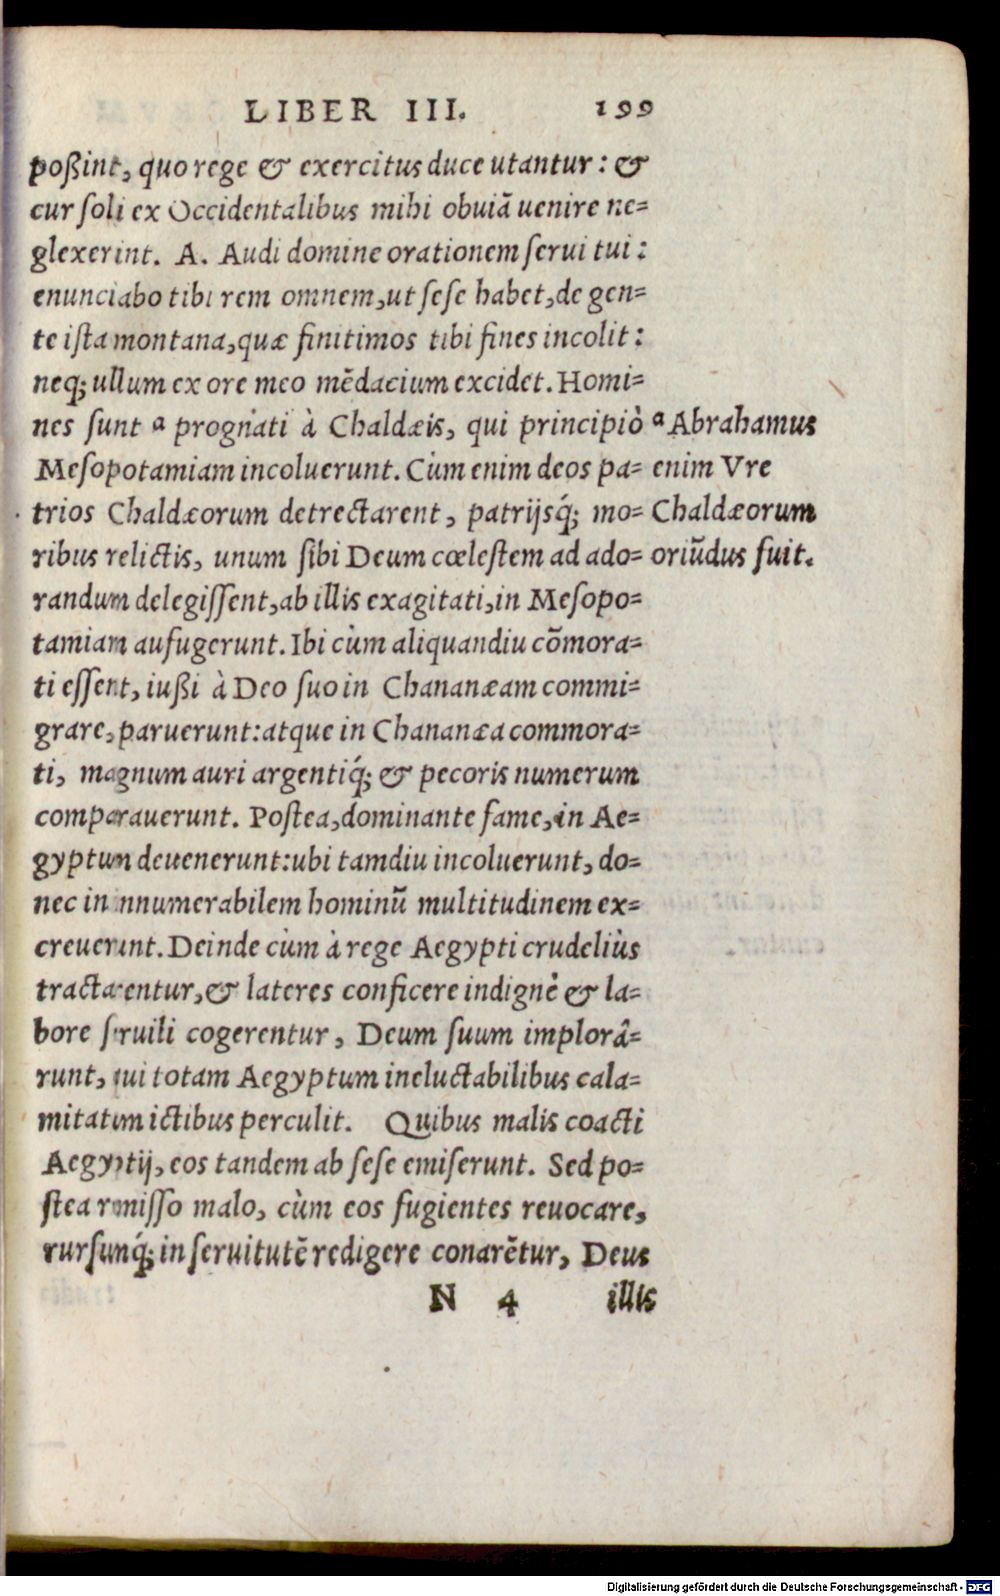 LIBER III. 199
poßint, quo rege & exercitus duce utantur: &
cur soli ex Occidentalibus mihi obuiā uenire ne=
glexerint. A. Audi domine orationem serui tui:
enunciabo tibi rem omnem, ut sese habet, de gen=
te ista montana, quæ finitimos tibi fines incolit:
neq; ullum ex ore meo mēdacium excidet. Homi=
nes sunt ᵃ prognati à Chaldæis, qui principiò
Mesopotamiam incoluerunt. Cùm enim deos pa=
trios Chaldæorum detrectarent, patrijsq́; mo=
ribus relictis, unum sibi Deum cœlestem ad ado=
randum delegissent, ab illis exagitati, in Mesopo=
tamiam aufugerunt. Ibi cùm aliquandiu cōmora=
ti essent, iußi à Deo suo in Chananæam commi=
grare, paruerunt: atque in Chananæa commora=
ti, magnum auri argentiq́; & pecoris numerum
comparauerunt. Postea, dominante fame, in Ae=
gyptum deuenerunt: ubi tamdiu incoluerunt, do=
nec in innumerabilem hominū multitudinem ex=
creuerint. Deinde cùm à rege Aegypti crudeliùs
tractarentur, & lateres conficere indignè & la=
bore seruili cogerentur, Deum suum implorâ=
runt, qui totam Aegyptum ineluctabilibus cala=
mitatum ictibus perculit. Quibus malis coacti
Aegyptij, eos tandem ab sese emiserunt. Sed po=
stea remisso malo, cùm eos fugientes reuocare,
rursunq́; in seruitutē redigere conarētur, Deus
N 4 illis
ᵃ Abrahamus
enim Vre
Chaldæorum
oriūdus fuit.
Digitalisierung gefördert durch die Deutsche Forschungsgemeinschaft - DFG